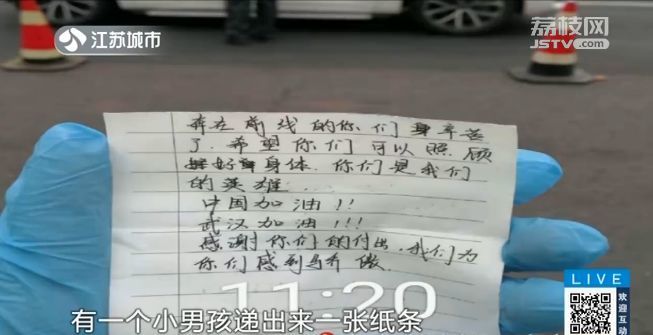 江苏城市
荔枝网
JSTV.com
奔在前线的你们辛苦
了.希望你们可以照顾
好身体.你们是我们
的英雄...
中国加油!!
武汉加油!!!
感谢你们的付出,我们为
你们感到骄傲.
11:20
有一个小男孩递出来一张纸条
LIVE
欢迎互动